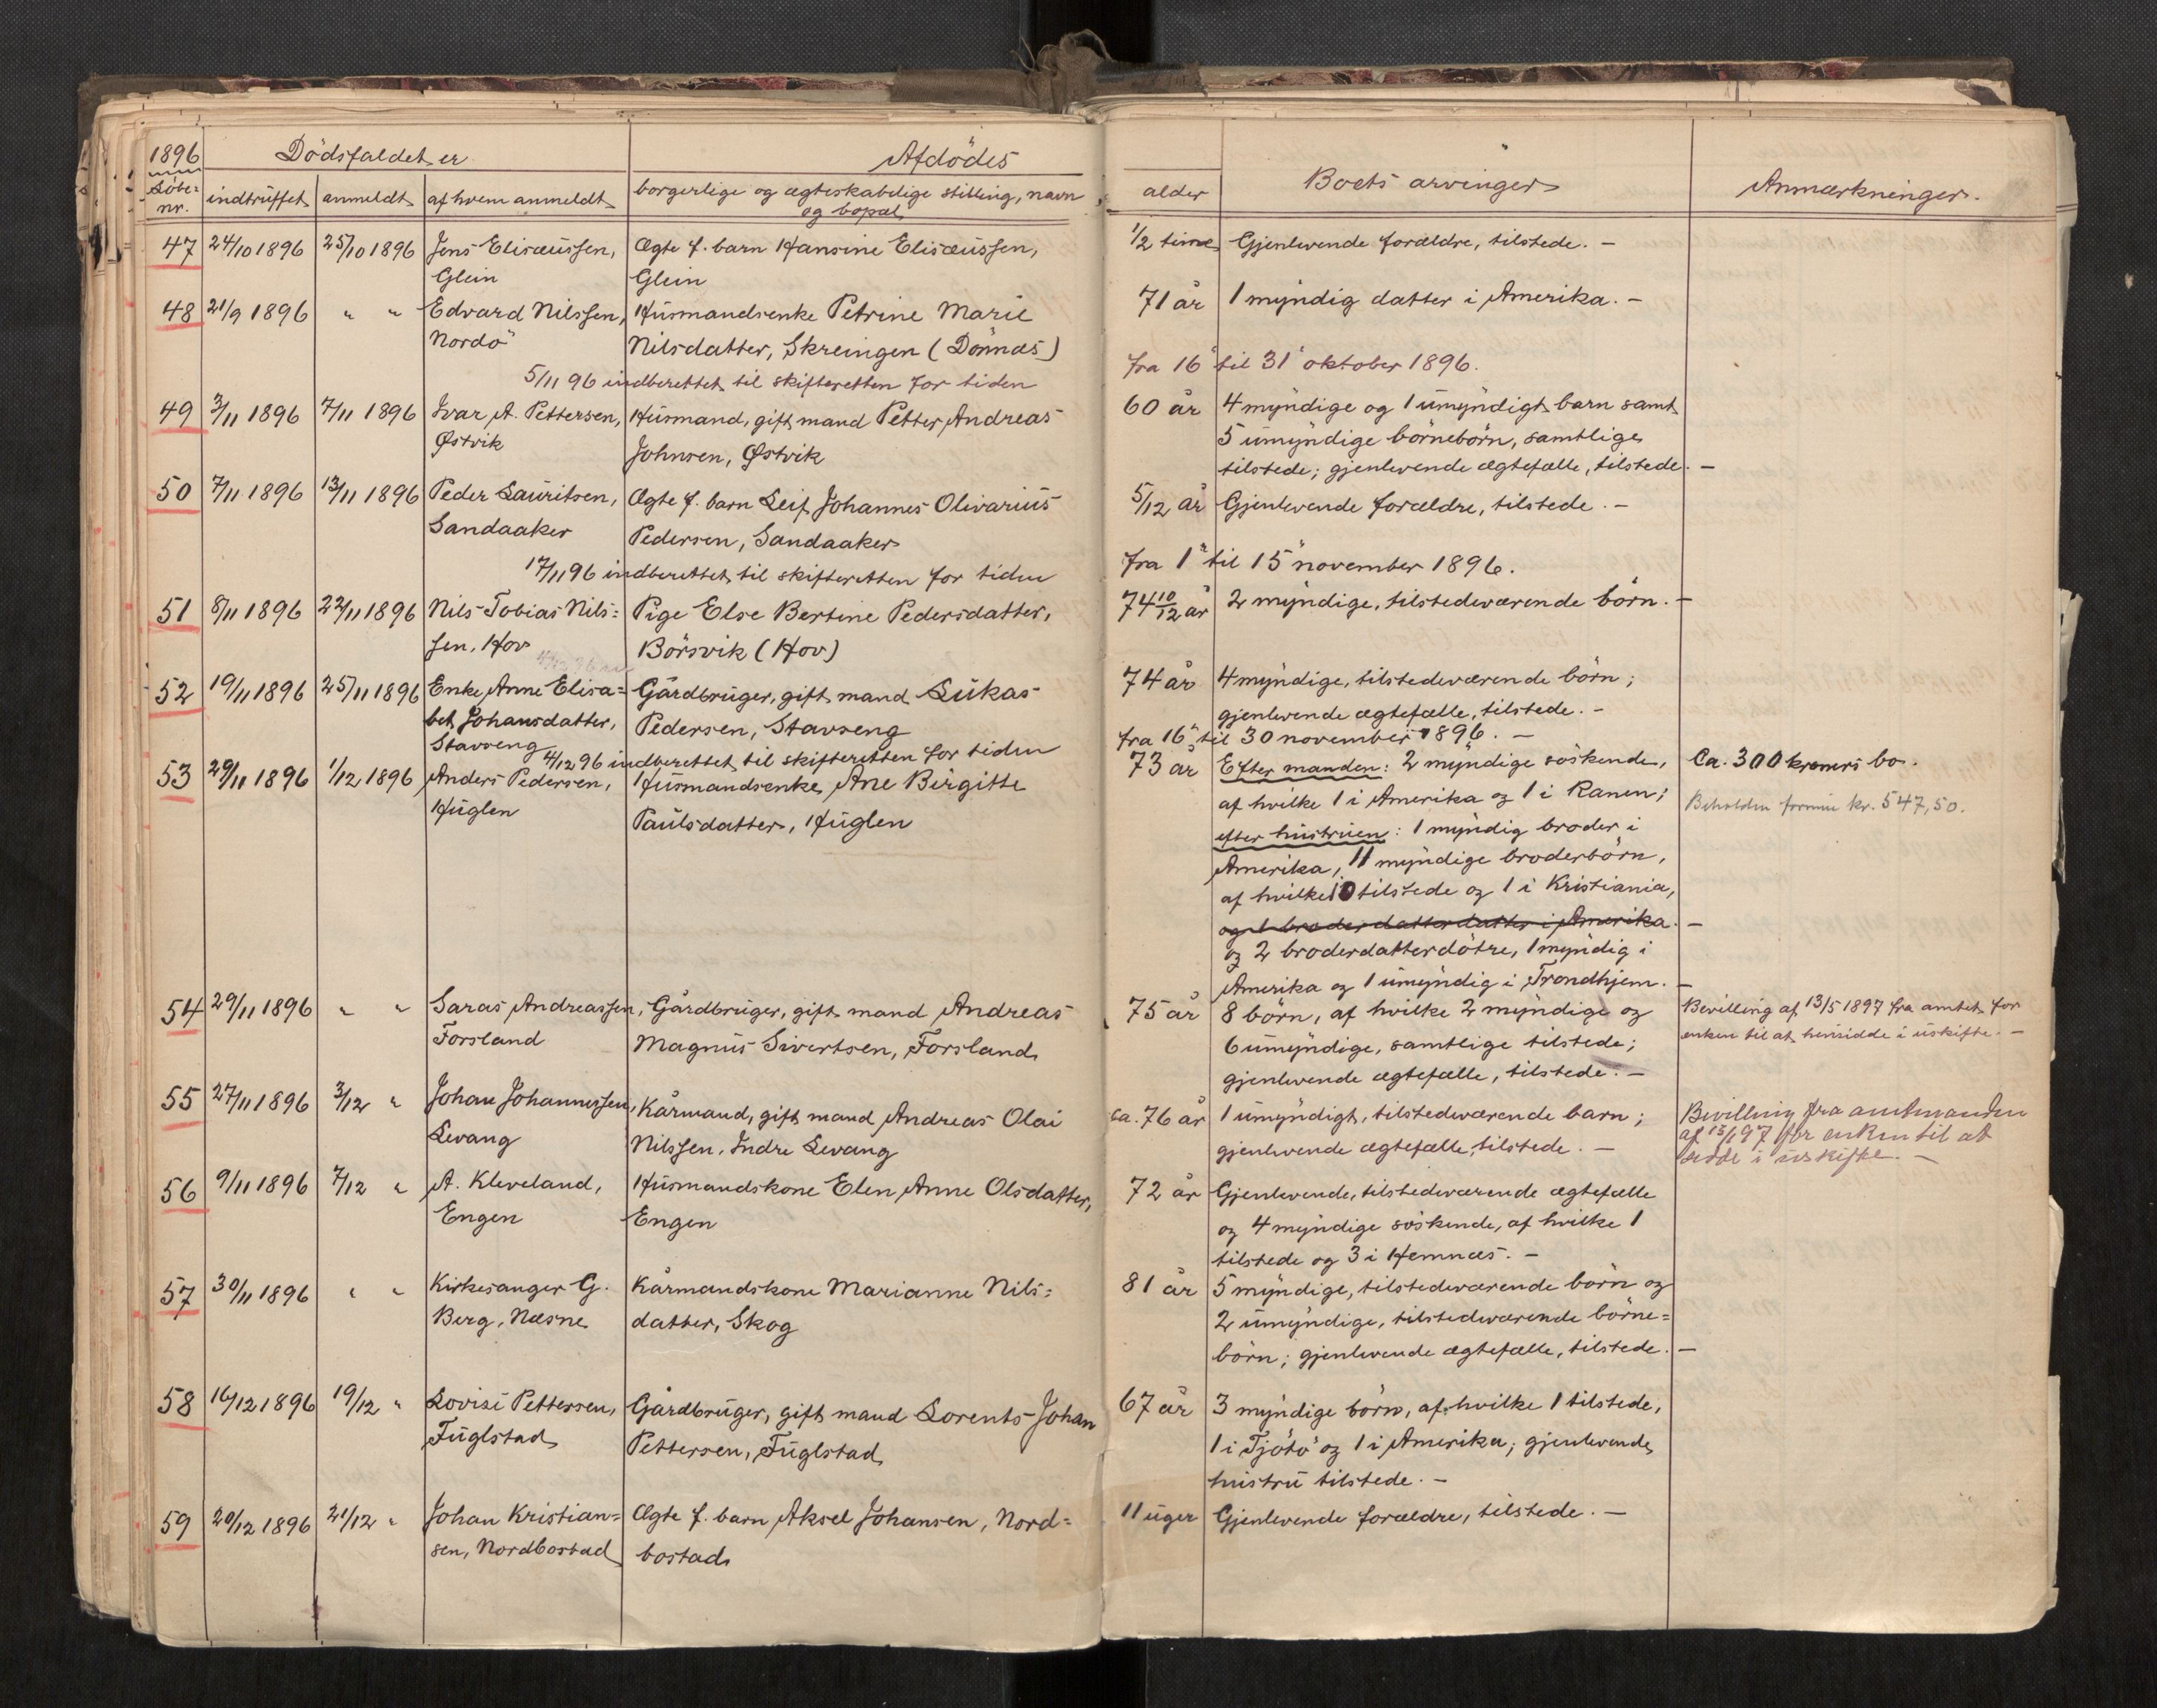 1896
Dödsfaldet er
Afdödes
Löbe=
nr.
indtruffet
anmeldt
af hvem anmeldt
borgerlige og ægteskabelige stilling, navn
og bopæl
alder
Boets arvinger
Anmærkninger.
47 24/10 1896 25/10 1896 Jens Elisæussen, Ægte f. barn Hansine Elisæussen, 1/2 time Gjenlevende forældre, tilstede. –
Glein Glein
48 21/9 1896 " " Edvard Nilssen, Husmandsenke Petrine Marie 71 år 1 myndig datter i Amerika. –
Nordö Nilsdatter, Skreingen (Dönnæs)
5/11 96 indberettet til skifteretten for tiden fra 16 til 31 oktober 1896.
49 3/11 1896 7/11 1896 Ivar A. Pettersen, Husmand, gift mand Petter Andreas 60 år 4 myndige og 1 umyndigt barn samt
Østvik Johnsen, Østvik 5 umyndige börnebörn, samtlige
tilstede; gjenlevende ægtefælle, tilstede. –
50 7/11 1896 13/11 1896 Peder Lauritsen, Ægte f. barn Leif Johannes Olivarius 5/12 år Gjenlevende forældre, tilstede. –
Sandaaker Pedersen, Sandaaker
17/11 96 indberettet til skifteretten for tiden fra 1 til 15 november 1896.
51 8/11 1896 22/11 1896 Nils Tobias Nils= Pige Else Bertine Pedersdatter, 74 10/12 år 2 myndige, tilstedeværende börn. –
sen, Hov Börsvik (Hov)
52 19/11 1896 25/11 1896 Enke Anne Elisa= Gårdbruger, gift mand Lukas 74 år 4 myndige, tilstedeværende börn;
bet Johansdatter, Pedersen, Stavseng gjenlevende ægtefælle, tilstede. –
Stavseng 4/12 96 indberettet til skifteretten for tiden fra 16 til 30 november 1896. –
53 29/11 1896 1/12 1896 Anders Pedersen, Husmandsenke Ane Birgitte 73 år Efter manden: 2 myndige söskende, Ca. 300 kroners bo.
Huglen Paulsdatter, Huglen af hvilke 1 i Amerika og 1 i Ranen; Beholden formue kr. 547,50.
efter hustruen: 1 myndig broder i
Amerika, 11 myndige broderbörn,
af hvilke 10 tilstede og 1 i Kristiania,
og 1 broderdatterdatter i Amerika. –
og 2 broderdatterdötre, 1 myndig i
Amerika og 1 umyndig i Trondhjem. –
54 29/11 1896 " " Saras Andreassen, Gårdbruger, gift mand Andreas 75 år 8 börn, af hvilke 2 myndige og Bevilling af 13/5 1897 fra amtet for
Forsland Magnus Sivertsen, Forsland 6 umyndige, samtlige tilstede; enken til at hensidde i uskifte. –
gjenlevende ægtefælle, tilstede. –
55 27/11 1896 3/12 " Johan Johannessen, Kårmand, gift mand Andreas Olai ca. 76 år 1 umyndigt, tilstedeværende barn; Bevilling fra amtmanden
Levang Nilssen, Indre Levang gjenlevende ægtefælle, tilstede. – af 15/1 97 for enken til at
sidde i uskifte. –
56 9/11 1896 7/12 " A. Kleveland, Husmandskone Elen Anne Olsdatter, 72 år Gjenlevende, tilstedeværende ægtefælle
Engen Engen og 4 myndige söskende, af hvilke 1
tilstede og 3 i Hemnæs. –
57 30/11 1896 " " Kirkesanger G. Kårmandskone Marianne Nils= 81 år 5 myndige, tilstedeværende börn og
Berg, Næsne datter, Skog 2 umyndige, tilstedeværende börne=
börn; gjenlevende ægtefælle, tilstede. –
58 16/12 1896 19/12 " Lovise Pettersen, Gårdbruger, gift mand Lorents Johan 67 år 3 myndige börn, af hvilke 1 tilstede,
Fuglstad Pettersen, Fuglstad 1 i Tjötö og 1 i Amerika; gjenlevende
hustru tilstede. –
59 20/12 1896 21/12 " Johan Kristian= Ægte f. barn Aksel Johansen, Nord= 11 uger Gjenlevende forældre, tilstede. –
sen, Nordbostad bostad